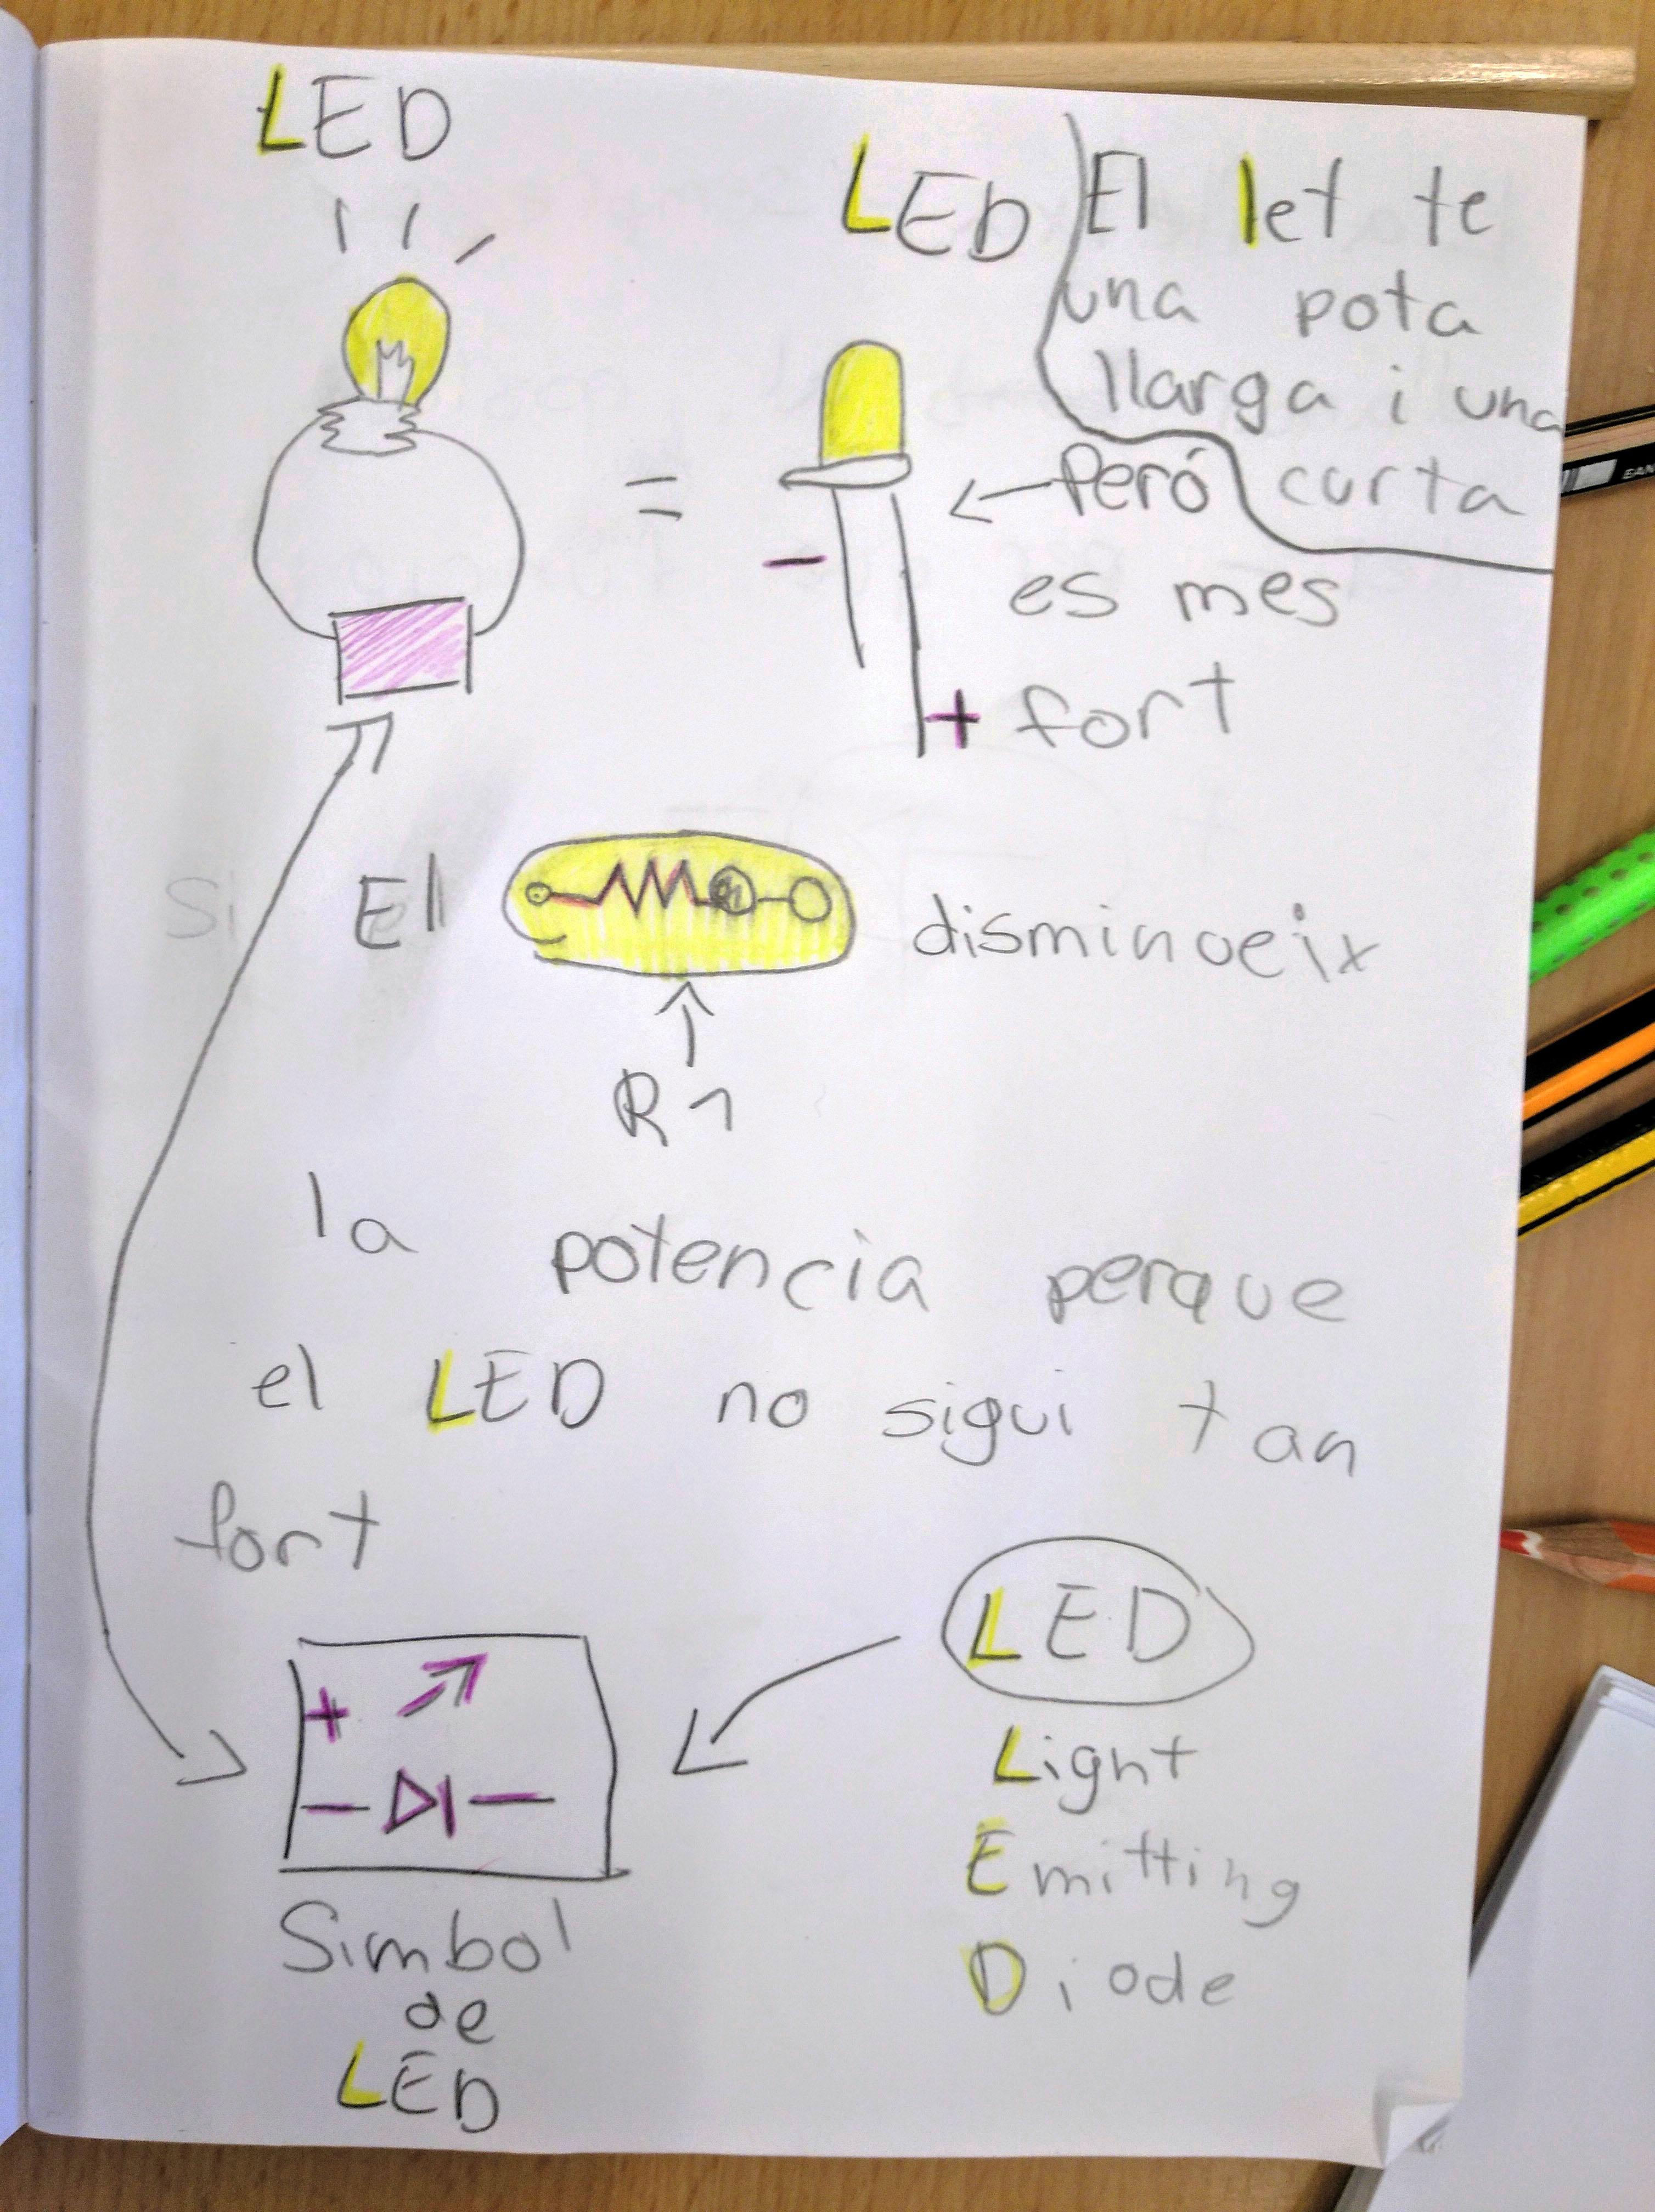 LED
LED
El let te
una pota
llarga i una
curta
=
← Peró
es mes
fort
-
+
Si El disminueix
R1
la potencia perque
el LED no sigui tan
fort
+
Simbol
de
LED
LED
Light
Emitting
Diode